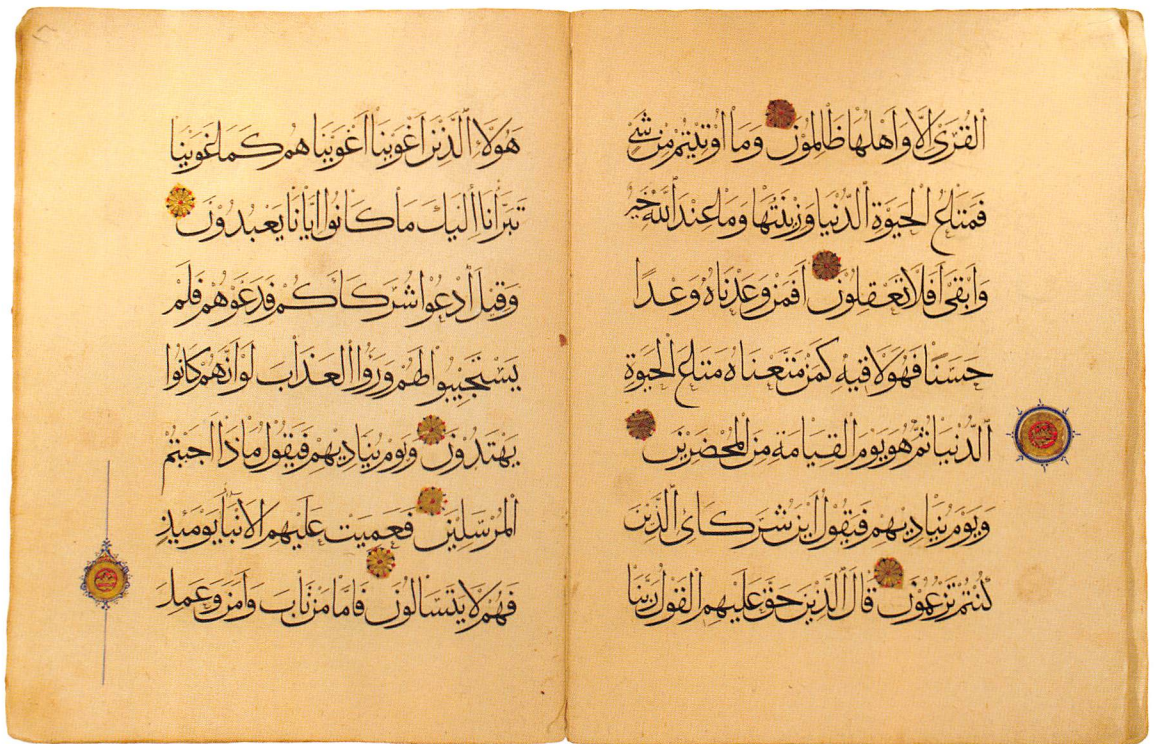 ٱلْقُرَىٰ إِلَّا وَأَهْلُهَا ظَالِمُونَ وَمَا أُوتِيتُمْ مِنْ شَيْءٍ
فَمَتَاعُ الْحَيَوةِ ٱلدُّنْيَا وَزِينَتُهَا وَمَا عِنْدَ ٱللَّهِ خَيْرٌ
وَأَبْقَىٰ أَفَلَا تَعْقِلُونَ أَفَمَنْ وَعَدْنَاهُ وَعْدًا
حَسَنًا فَهُوَ لَاقِيهِ كَمَنْ مَتَّعْنَاهُ مَتَاعَ الْحَيَوةِ
ٱلدُّنْيَا ثُمَّ هُوَ يَوْمَ الْقِيَامَةِ مِنَ الْمُحْضَرِينَ
وَيَوْمَ يُنَادِيهِمْ فَيَقُولُ أَيْنَ شُرَكَاىَ ٱلَّذِينَ
كُنْتُمْ تَزْعُمُونَ قَالَ ٱلَّذِينَ حَقَّ عَلَيْهِمُ الْقَوْلُ رَبَّنَا
هَؤُلَاءِ ٱلَّذِينَ أَغْوَيْنَا أَغْوَيْنَاهُمْ كَمَا غَوَيْنَا
تَبَرَّأْنَا إِلَيْكَ مَا كَانُوا إِيَّانَا يَعْبُدُونَ
وَقِيلَ ٱدْعُوا شُرَكَاءَكُمْ فَدَعَوْهُمْ فَلَمْ
يَسْتَجِيبُوا لَهُمْ وَرَأَوُا الْعَذَابَ لَوْ أَنَّهُمْ كَانُوا
يَهْتَدُونَ وَيَوْمَ يُنَادِيهِمْ فَيَقُولُ مَاذَا أَجَبْتُمُ
الْمُرْسَلِينَ فَعَمِيَتْ عَلَيْهِمُ الْأَنْبَاءُ يَوْمَئِذٍ
فَهُمْ لَا يَتَسَاءَلُونَ فَأَمَّا مَنْ تَابَ وَآمَنَ وَعَمِلَ